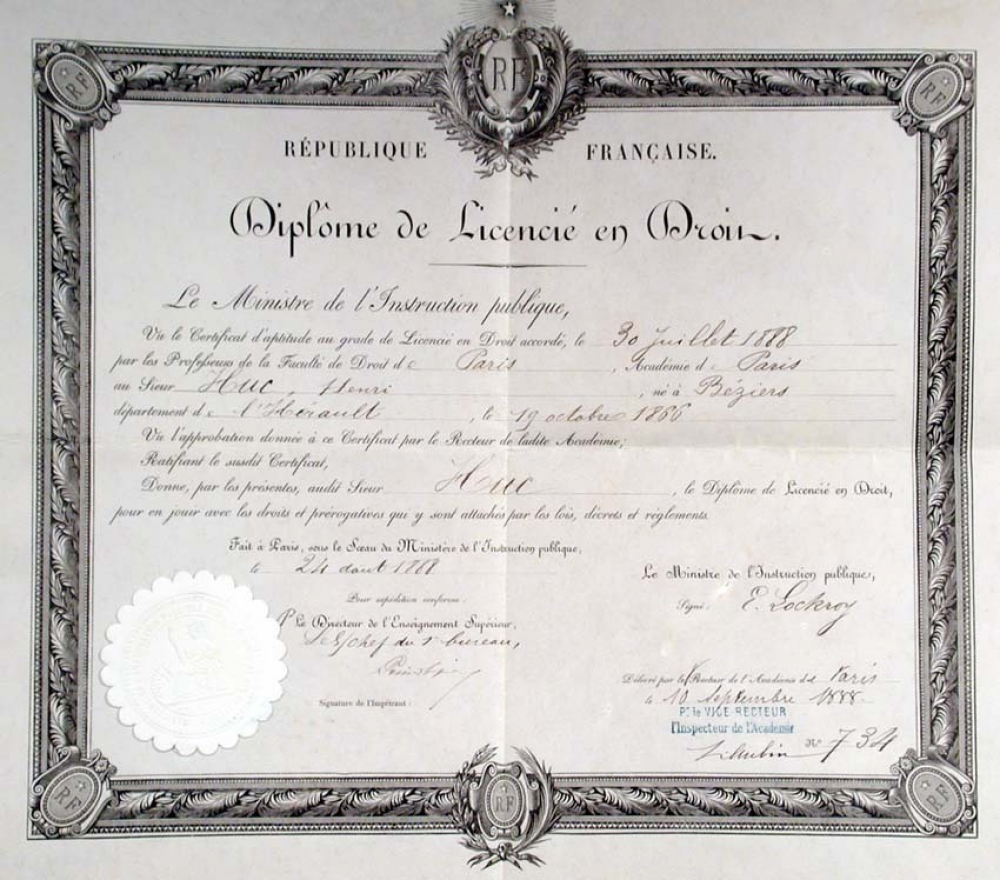 RF
RF
RF
RÉPUBLIQUE FRANÇAISE.
Diplôme de Licencié en Droit.
Le Ministre de l'Instruction publique,
Vu le Certificat d'aptitude au grade de Licencié en Droit accordé, le 30 Juillet 1888
par les Professeurs de la Faculté de Droit de Paris, Académie de Paris
au Sieur Huc, Henri, né à Béziers
département de l'Hérault, le 19 octobre 1866
Vu l'approbation donnée à ce Certificat par le Recteur de ladite Académie;
Ratifiant le susdit Certificat,
Donne, par les présentes, audit Sieur Huc, le Diplôme de Licencié en Droit,
pour en jouir avec les droits et prérogatives qui y sont attachés par les lois, décrets et règlements.
Fait à Paris, sous le Sceau du Ministère de l'Instruction publique,
le 24 août 1888
Le Ministre de l'Instruction publique,
Signé: E. Lockroy
Pour expédition conforme:
Pr Le Directeur de l'Enseignement Supérieur,
Le S/chef du 1er bureau,
Délivré par le Recteur de l'Académie de Paris
le 10 Septembre 1888
Signature de l'Impétrant:
Pr le VICE-RECTEUR
l'Inspecteur de l'Académie
No 734
RF
RF
RF